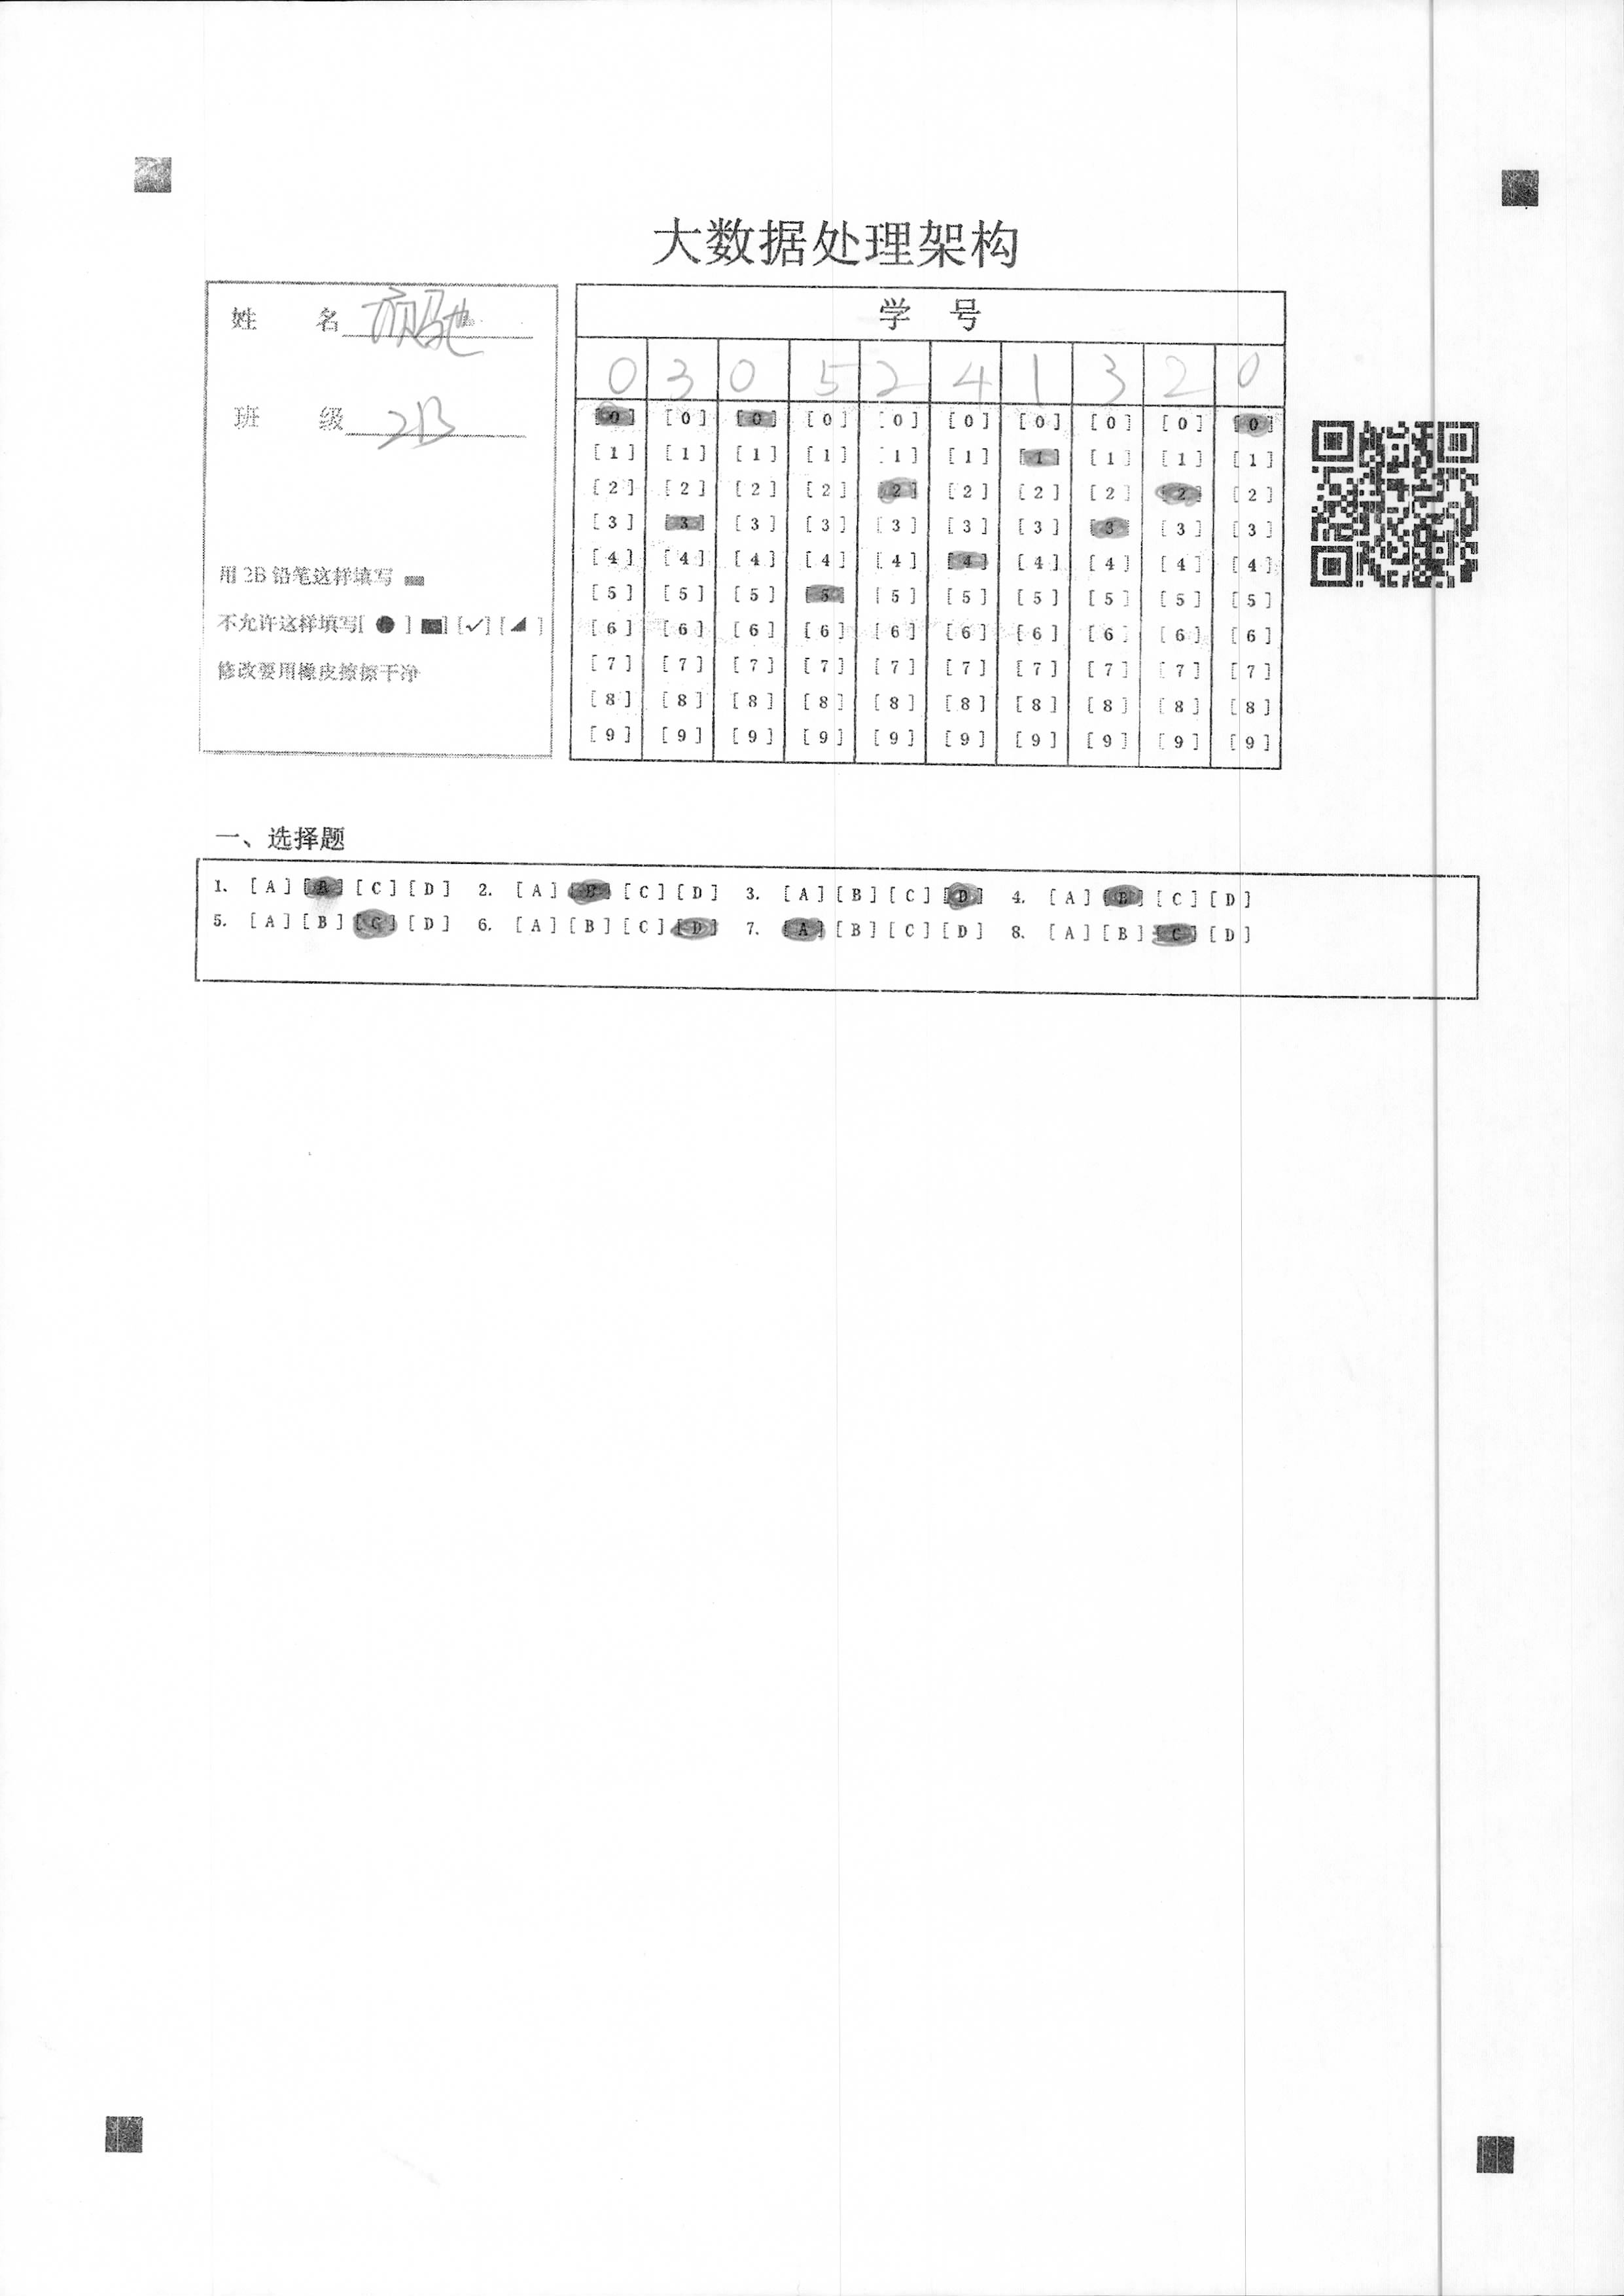 大数据处理架构
姓 名
班 级 2B
用 2B 铅笔这样填写
不允许这样填写[ ● ] [■] [✓] [◢ ]
修改要用橡皮擦擦干净
学 号
0 3 0 5 2 4 1 3 2 0
[0] [0] [0] [0] [0] [0] [0] [0] [0] [0]
[1] [1] [1] [1] [1] [1] [1] [1] [1] [1]
[2] [2] [2] [2] [2] [2] [2] [2] [2] [2]
[3] [3] [3] [3] [3] [3] [3] [3] [3] [3]
[4] [4] [4] [4] [4] [4] [4] [4] [4] [4]
[5] [5] [5] [5] [5] [5] [5] [5] [5] [5]
[6] [6] [6] [6] [6] [6] [6] [6] [6] [6]
[7] [7] [7] [7] [7] [7] [7] [7] [7] [7]
[8] [8] [8] [8] [8] [8] [8] [8] [8] [8]
[9] [9] [9] [9] [9] [9] [9] [9] [9] [9]
一、选择题
1. [A] [B] [C] [D] 2. [A] [B] [C] [D] 3. [A] [B] [C] [D] 4. [A] [B] [C] [D]
5. [A] [B] [C] [D] 6. [A] [B] [C] [D] 7. [A] [B] [C] [D] 8. [A] [B] [C] [D]